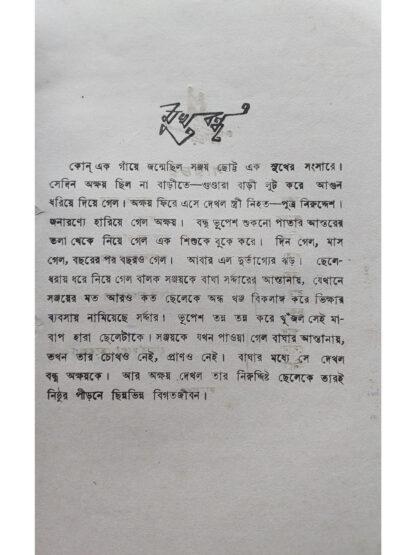 মুখবন্ধ
কোন্ এক গাঁয়ে জন্মেছিল সঞ্জয় ছোট্ট এক সুখের সংসারে।
সেদিন অক্ষয় ছিল না বাড়ীতে—গুণ্ডারা বাড়ী লুট করে আগুন
ধরিয়ে দিয়ে গেল। অক্ষয় ফিরে এসে দেখল স্ত্রী নিহত—পুত্র নিরুদ্দেশ।
জনারণ্যে হারিয়ে গেল অক্ষয়। বন্ধু ভূপেশ শুকনো পাতার আস্তরের
তলা থেকে নিয়ে গেল এক শিশুকে বুকে করে। দিন গেল, মাস
গেল, বছরের পর বছরও গেল। আবার এল দুর্ভাগ্যের ঝড়। ছেলে-
ধরায় ধরে নিয়ে গেল বালক সঞ্জয়কে বাঘা সর্দ্দারের আস্তানায়, যেখানে
সঞ্জয়ের মত আরও কত ছেলেকে অন্ধ খঞ্জ বিকলাঙ্গ করে ভিক্ষার
ব্যবসায় নামিয়েছে সর্দ্দার। ভূপেশ তন্ন তন্ন করে খুঁজল সেই মা-
বাপ হারা ছেলেটাকে। সঞ্জয়কে যখন পাওয়া গেল বাঘার আস্তানায়,
তখন তার চোখও নেই, প্রাণও নেই। বাঘার মধ্যে সে দেখল
বন্ধু অক্ষয়কে। আর অক্ষয় দেখল তার নিরুদ্দিষ্ট ছেলেকে তারই
নিষ্ঠুর পীড়নে ছিন্নভিন্ন বিগতজীবন।